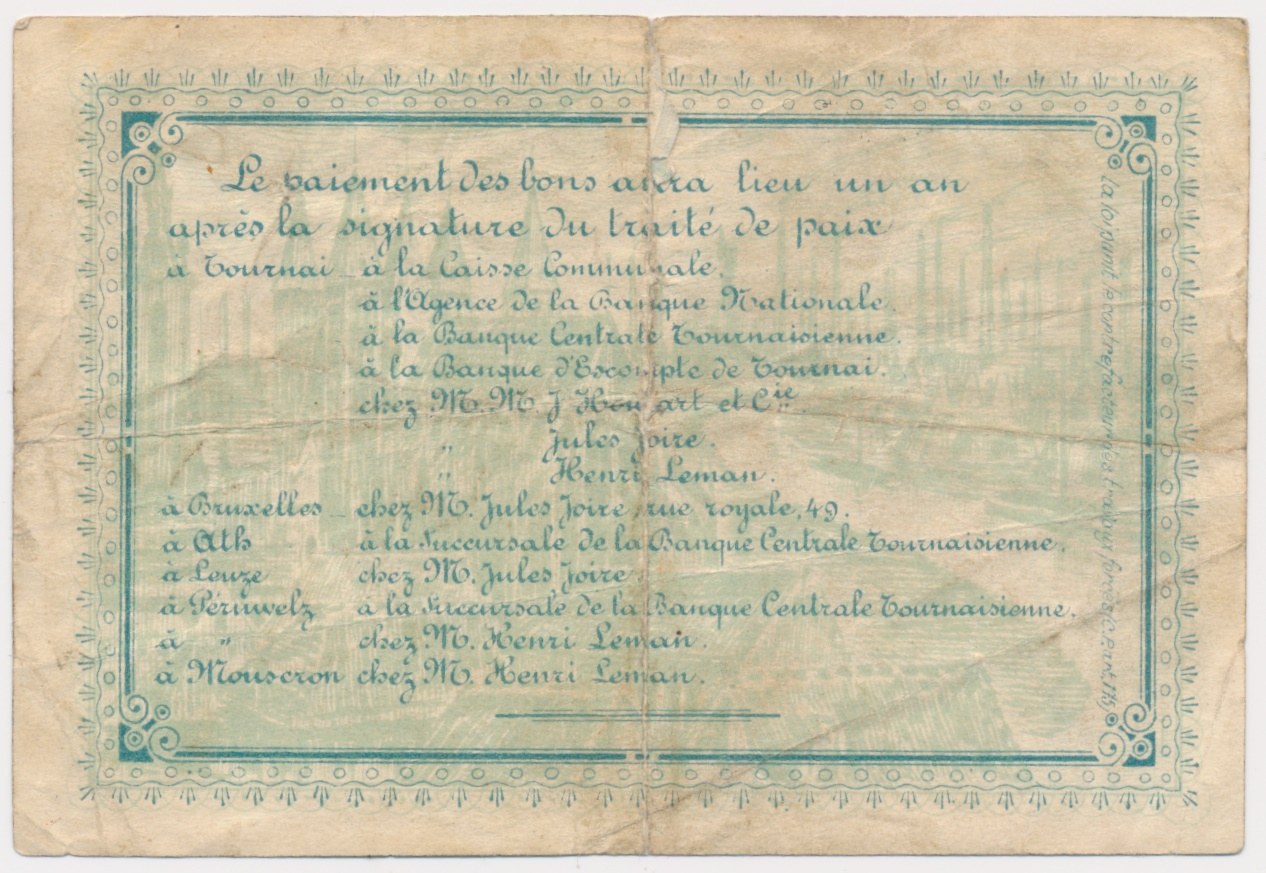 Le paiement des bons aura lieu un an
après la signature du traité de paix
à Tournai à la Caisse Communale.
à l'Agence de la Banque Nationale.
à la Banque Centrale Tournaisienne.
à la Banque d'Escompte de Tournai.
chez M.M. J Houzart et Cie
" Jules Joire.
" Henri Leman.
à Bruxelles chez M. Jules Joire, rue royale, 49.
à Ath à la Succursale de la Banque Centrale Tournaisienne.
à Leuze chez M. Jules Joire
à Péruwelz à la Succursale de la Banque Centrale Tournaisienne.
à " chez M. Henri Leman.
à Mouscron chez M. Henri Leman.
La loi punit le contrefacteur des travaux forcés (C.P. art. 173)